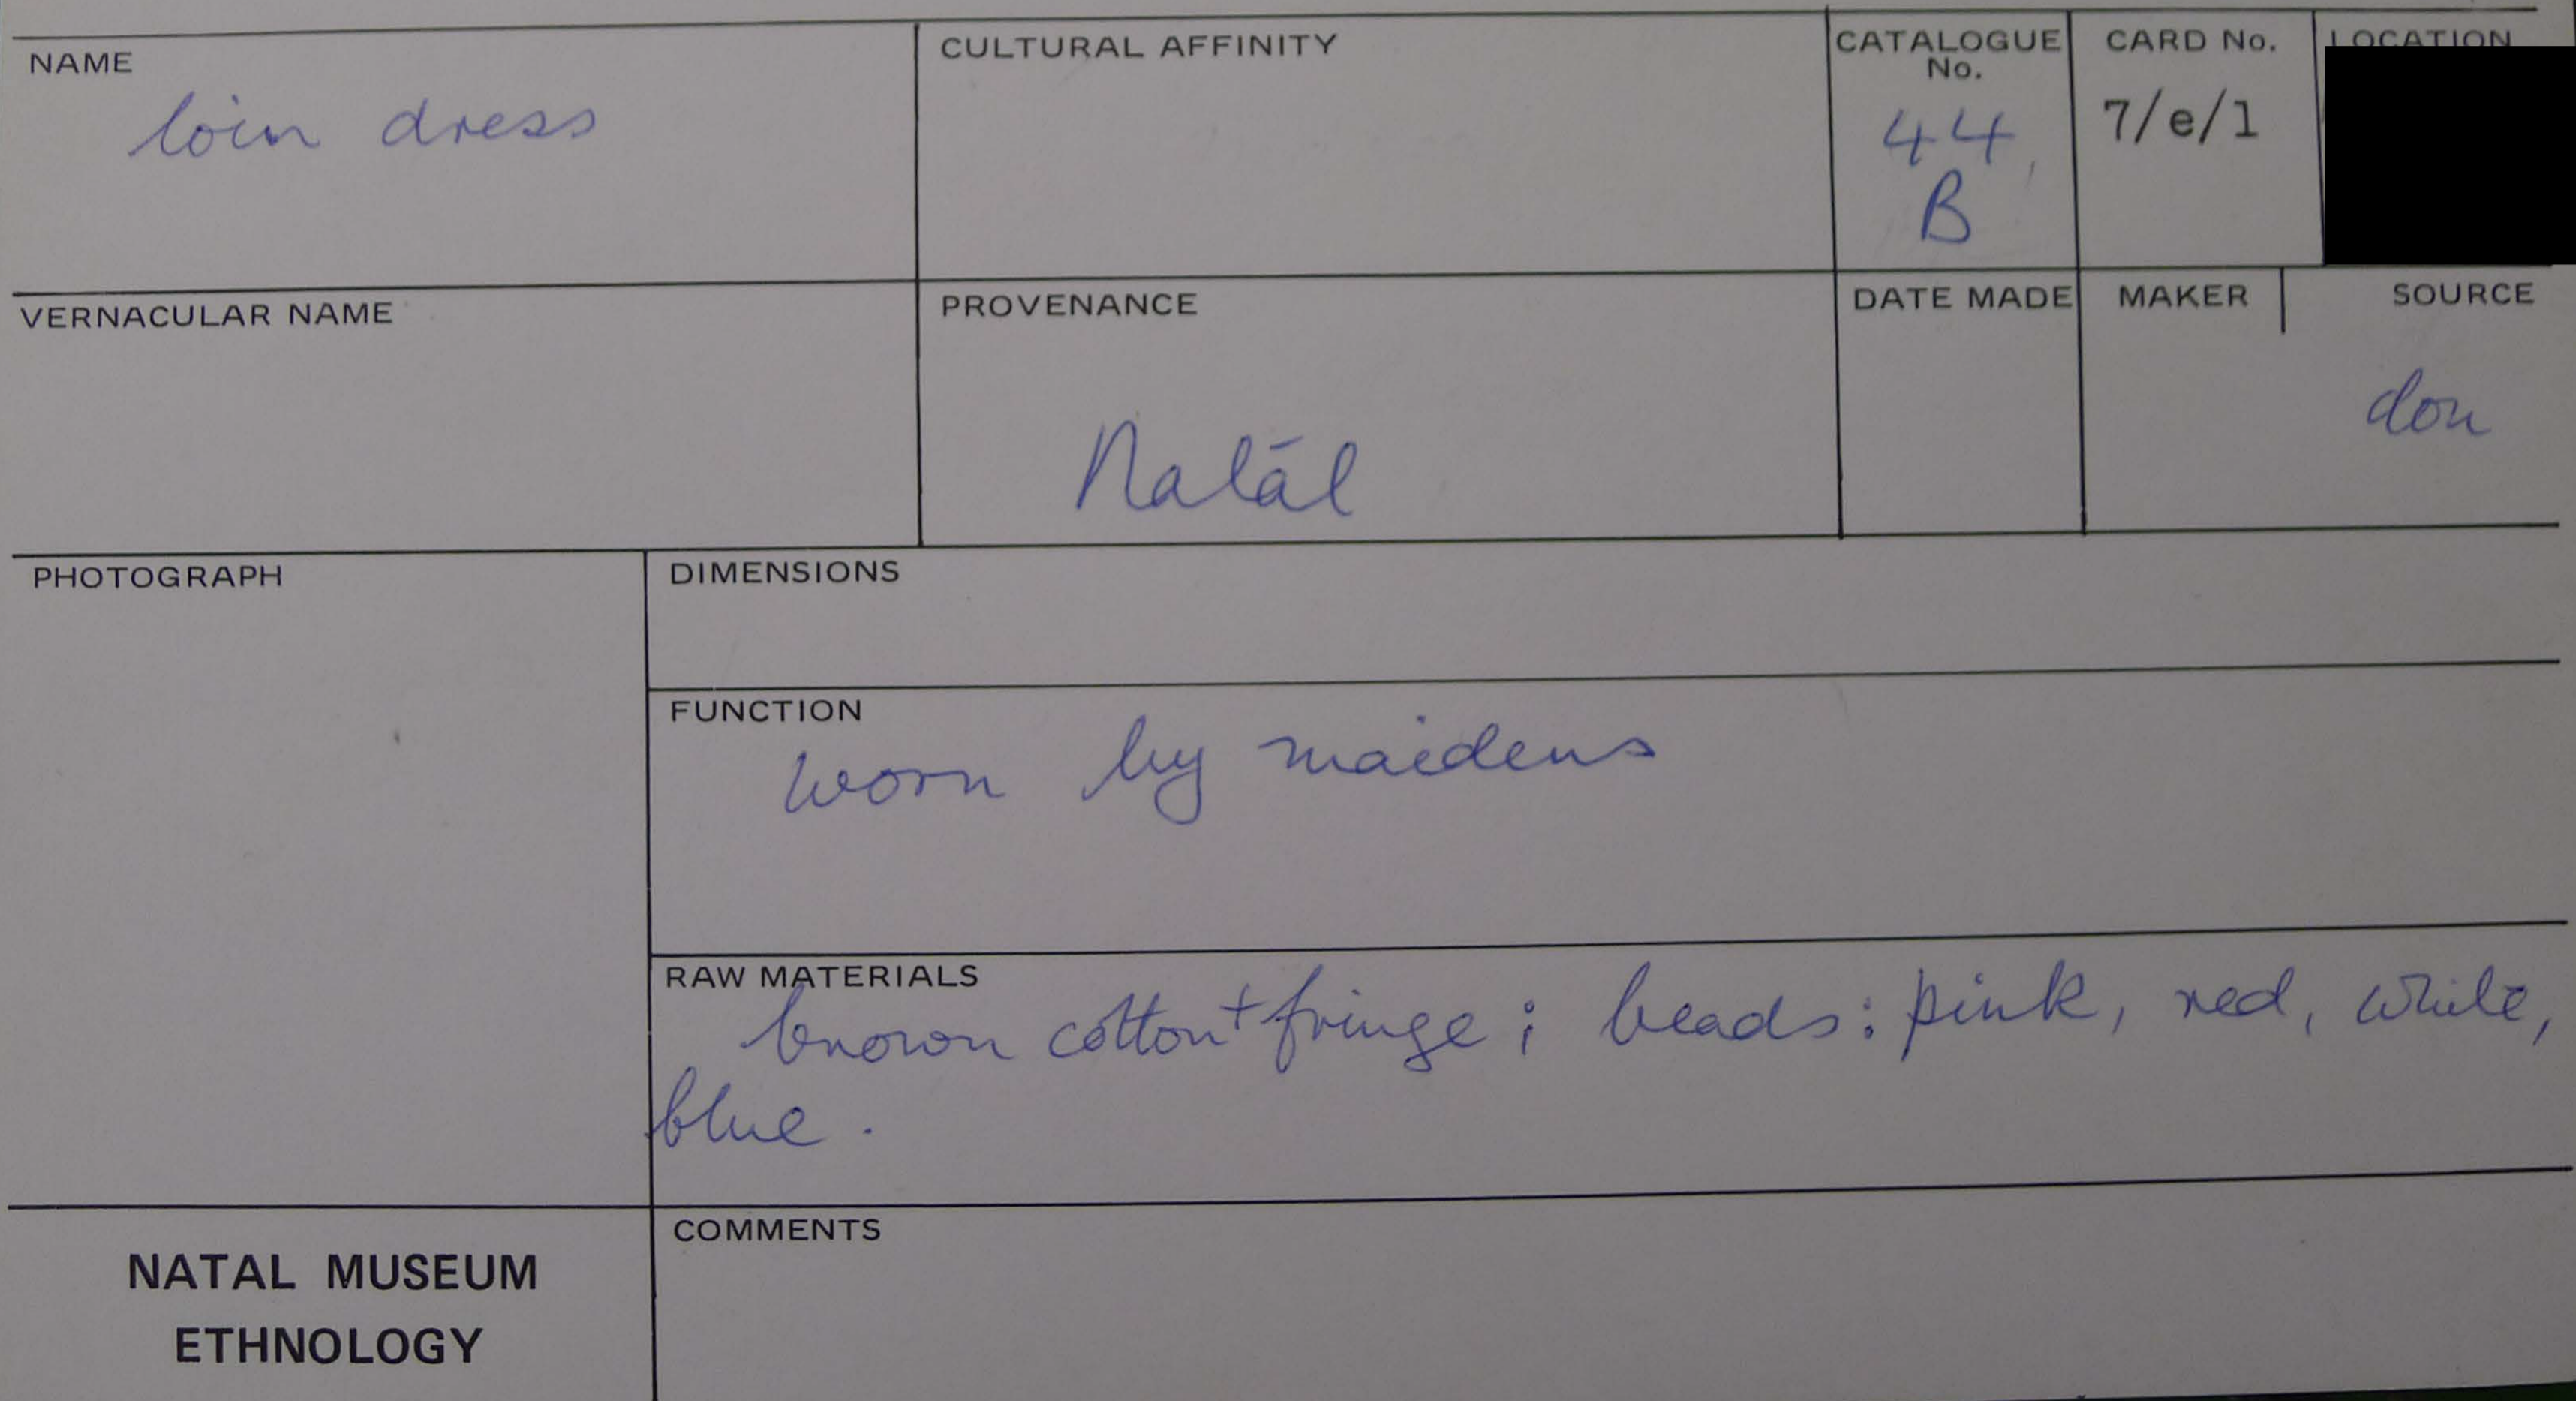 NAME
loin dress
CULTURAL AFFINITY
CATALOGUE No.
44
B
CARD No.
7/e/1
LOCATION
VERNACULAR NAME
PROVENANCE
Natál
DATE MADE
MAKER
SOURCE
don
PHOTOGRAPH
DIMENSIONS
FUNCTION
worn by maidens
RAW MATERIALS
brown cotton + fringe; beads: pink, red, white,
blue.
NATAL MUSEUM
ETHNOLOGY
COMMENTS